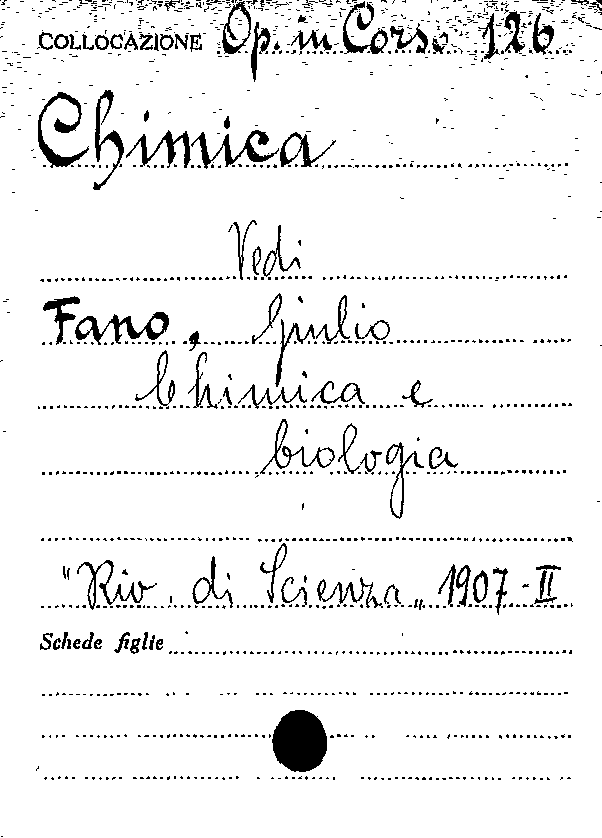 COLLOCAZIONE Op. in Corso 126
Chimica
Vedi
Fano, Giulio
Chimica e
biologia
"Riv. di Scienza„ 1907-II
Schede figlie